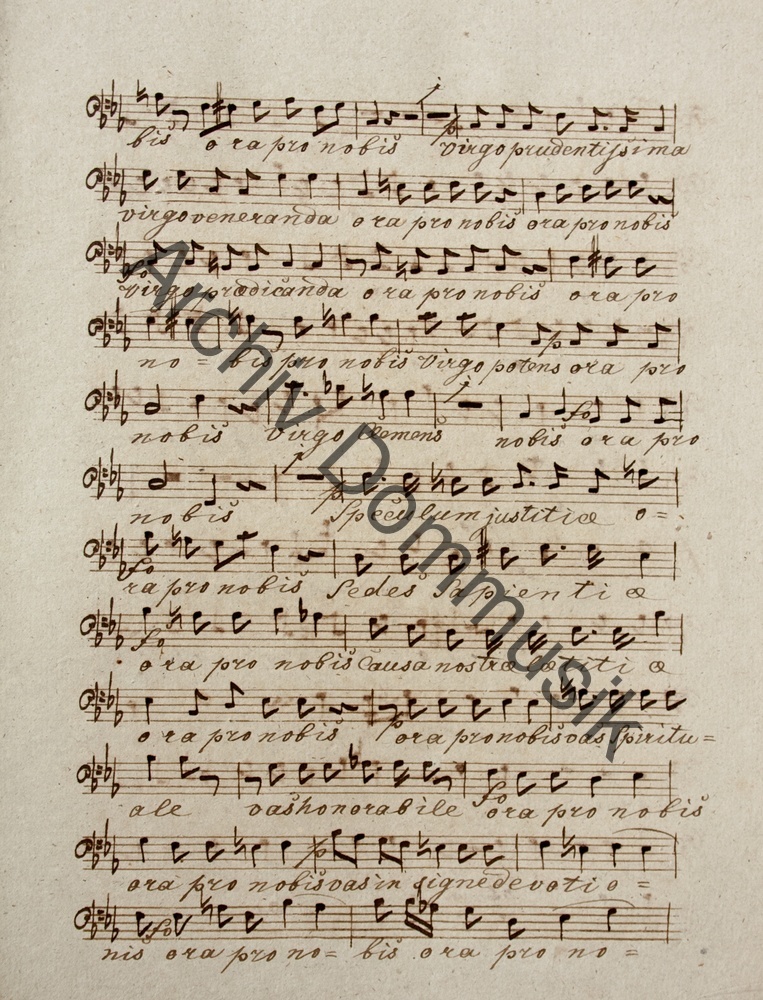 bis ora pro nobis virgo prudentissima
virgo veneranda ora pro nobis ora pro nobis
fo
virgo prædicanda ora pro nobis ora pro
no = bis pro nobis virgo potens ora pro
nobis virgo clemens nobis ora pro
nobis Speculum justitiæ o =
fo
ra pro nobis Sedes Sapientiæ
fo
ora pro nobis Causa nostræ lætitiæ
ora pro nobis ora pro nobis vas Spiritu =
ale vas honorabile ora pro nobis
ora pro nobis vas insigne devotio =
nis ora pro no = bis ora pro no =
Archiv Dommusik